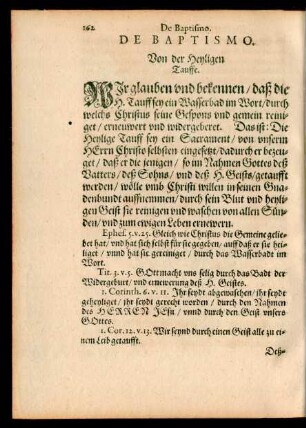 262 De Baptismo.
DE BAPTISMO.
Von der Heyligen
Tauffe.
WIr glauben vnd bekennen / daß die
H. Tauff sey ein Wasserbad im Wort / durch
welchs Christus seine Gespons vnd gemein reini-
get / ernewert vnd widergeberet. Das ist: Die
Heylige Tauff sey ein Sacrament / von vnserm
HErrn Christo selbsten eingesetzt / dadurch er bezeu-
get / daß er die jenigen / so im Nahmen Gottes deß
Vatters / deß Sohns / vnd deß H. Geists / getaufft
werden / wölle vmb Christi willen in seinen Gna-
denbundt auffnemmen / durch sein Blut vnd heyli-
gen Geist sie reinigen vnd waschen von allen Sün-
den / vnd zum ewigen Leben ernewern.
Ephes. 5. v. 25. Gleich wie Christus die Gemeine gelie-
bet hat / vnd hat sich selbst für sie gegeben / auff daß er sie hei-
liget / vnnd hat sie gereiniget / durch das Wasserbadt im
Wort.
Tit. 3. v. 5. GOtt macht vns selig durch das Badt der
Widergeburt / vnd ernewerung deß H. Geistes.
1. Corinth. 6. v. 11. Ihr seydt abgewaschen / ihr seydt
geheyliget / ihr seydt gerecht worden / durch den Nahmen
des HERREN JEsu / vnnd durch den Geist vnsers
GOttes.
1. Cor. 12. v. 13. Wir seynd durch einen Geist alle zu ei-
nem Leib getaufft.
Deß-